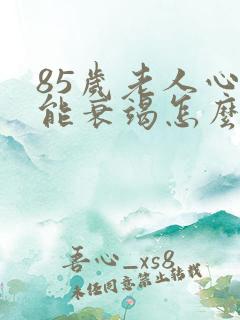 85歲老人心
能衰竭怎麼
吾心_xs8
未经同意禁止转载